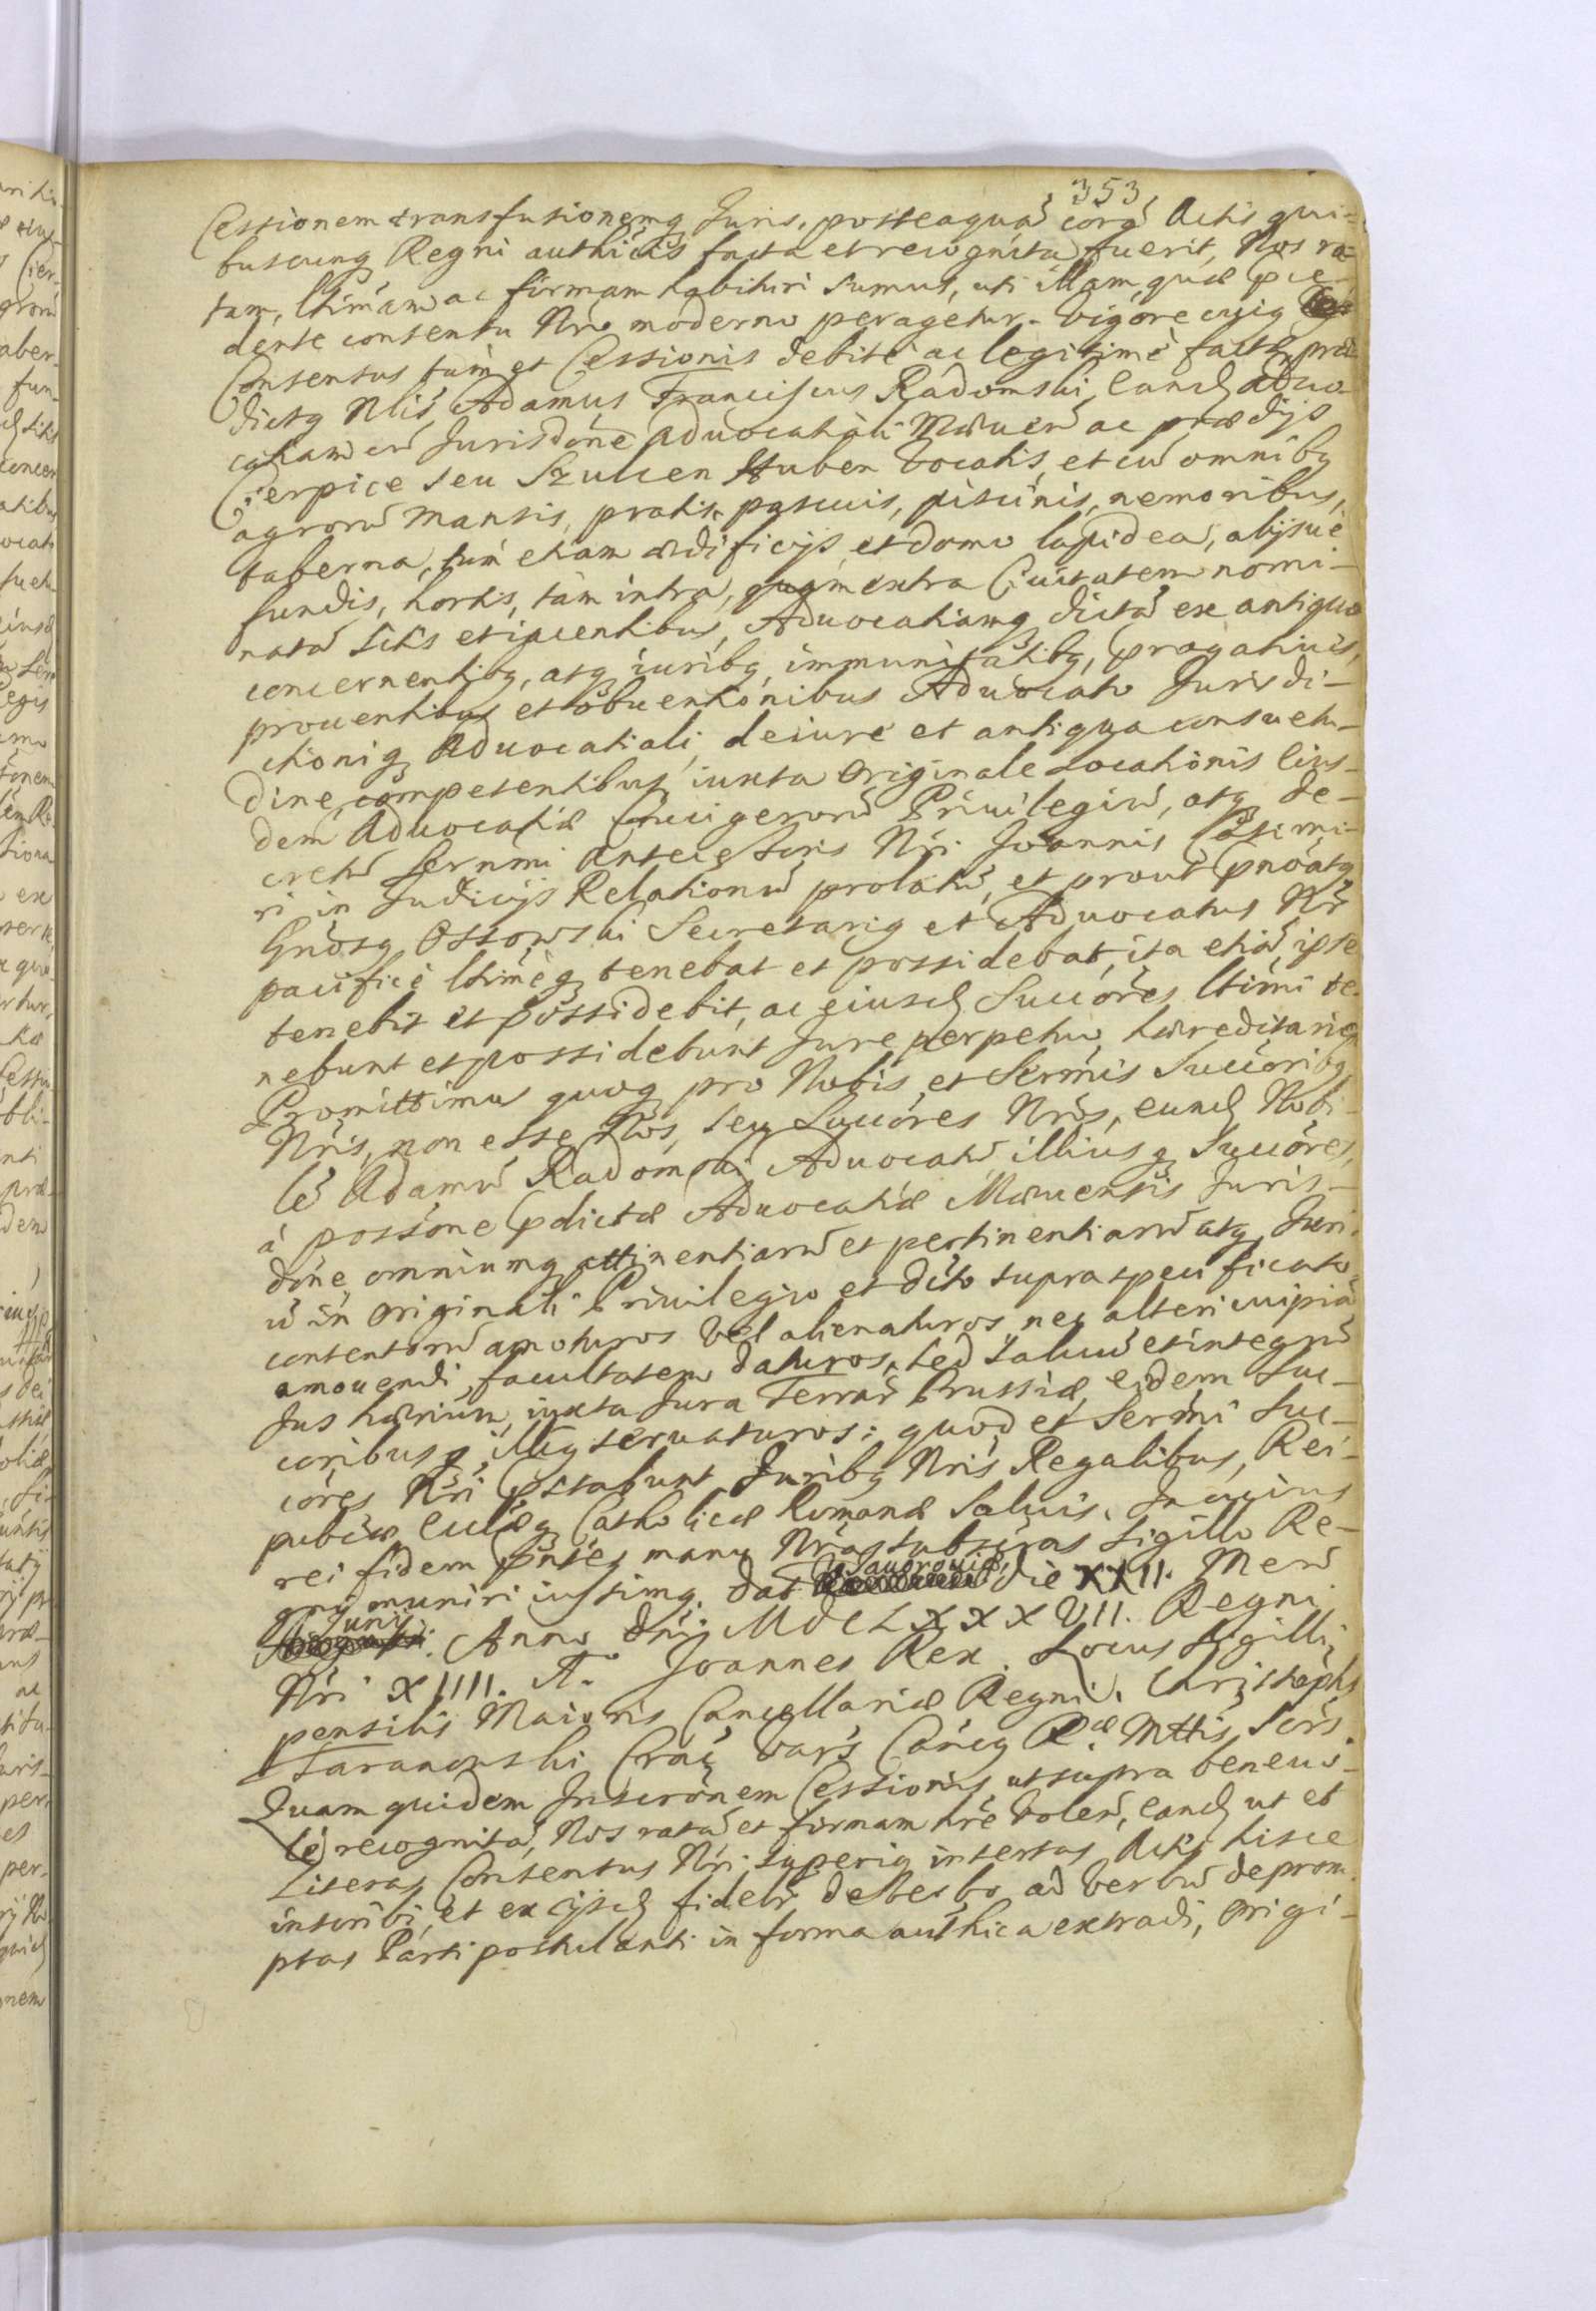 353
Cessionem transfusionemq Juris, posteaquā corā Actis qui-
buscunq Regni authicis facta et recognita fuerit, Nos ra-
tam, ltimam ac firmam habituri sumus, uti illam, quæ Pce-
dente consensu Nro moderno peragetur. Vigore cuiq
Consensus tum et Cessionis debite ac legitime factæ præ-
dictq Nlis Adamus Franciscus Radomski, eand Advo-
catiam cū Jurisdōne Advocatiali Mævēn ac prædijs
Cierpice seu Szulcen Huben vocatis, et cū omnibq
agrorū mansis, pratis, pascuis, piscinis, nemoribus,
taberna, tum etiam ædificijs, et domo lapidea, alijsue
fundis, hortis, tàm intra, quàm extra Ciuitatem nomi-
natā sitis et iacentibus, Aduocatiamq dictā ex antiquo
concernentibq, atq iuribq, immunitatibq, Progatiuis,
prouentibus et obuentionibus Aduocato Jurisdi-
ctioniq Aduocatiali, de iure et antiqua consuetu-
dine, competentibus, iuxta originale Locationis eius-
dem Aduocatiæ Crucigerorū Priuilegiū, atq de-
cretū Sernmi Antecessoris Nri Joannis Casimi-
ri in Judicijs Relationū prolatū, et prout Pnoātq
Gnosq Ossowski Secretariq et Aduocatus Nr
pacifice ltimeq tenebat et possidebat, ita etiā, ipse
tenebit et possidebit, ac eiusd Succōres ltimi te-
nebunt et possidebunt Jure perpetuo, hæreditarioq
Promittimus quoq pro Nobis, et Sermis Succōribq
Nris, non esse Nos, seu Succōres Nros, eund Nobi-
lē Adamū Radomski Aduocatū, illiusq Succōres,
à possōne Pdictæ Aduocatiæ Mæuensis Juris-
dōne, omniumq attinentiarū et pertinentiarū atq Juri-
ū in originali Priuilegio et dcto supra specificato
contentorū amoturos vel alienaturos, nec alteri cuipiā
amouendi, facultatem daturos, sed saluū et integrū
Jus hærium, iuxta Jura Terrar Prussiæ, eidem Suc-
coribusq illiq seruaturos: quod et Sermi Suc-
cōres Nri Pstabunt. Juribq Nris Regalibus, Rei-
publicæ Eccliæq Catholicæ Romanæ Saluis. In cuius
rei fidem Pntes manu Nra subscras Sigillo Re-
gni muniri iussimq. Dat Jauorouiæ die XXII. Men
Junij. Anno Dni MDCLXXXVII. Regni
Nri XIIII. A. Joannes Rex. Locus Sigilli
pensilis Maioris Cancellariæ Regni. Christophs
Taranowski Crac Vars Canc R.æ Mttis Scrs.
Quam quidem Inscrōnem Cessionis ut supra beneuo-
lē recognitā, Nos ratā et firmam hre volen, eand ut et
Literas Consensus Nri superiq insertas Actis hisce
inscribi, et ex ijsd fidelr de verbo ad verbū deprom-
ptas Parti postulanti in forma authica extradi, origi-